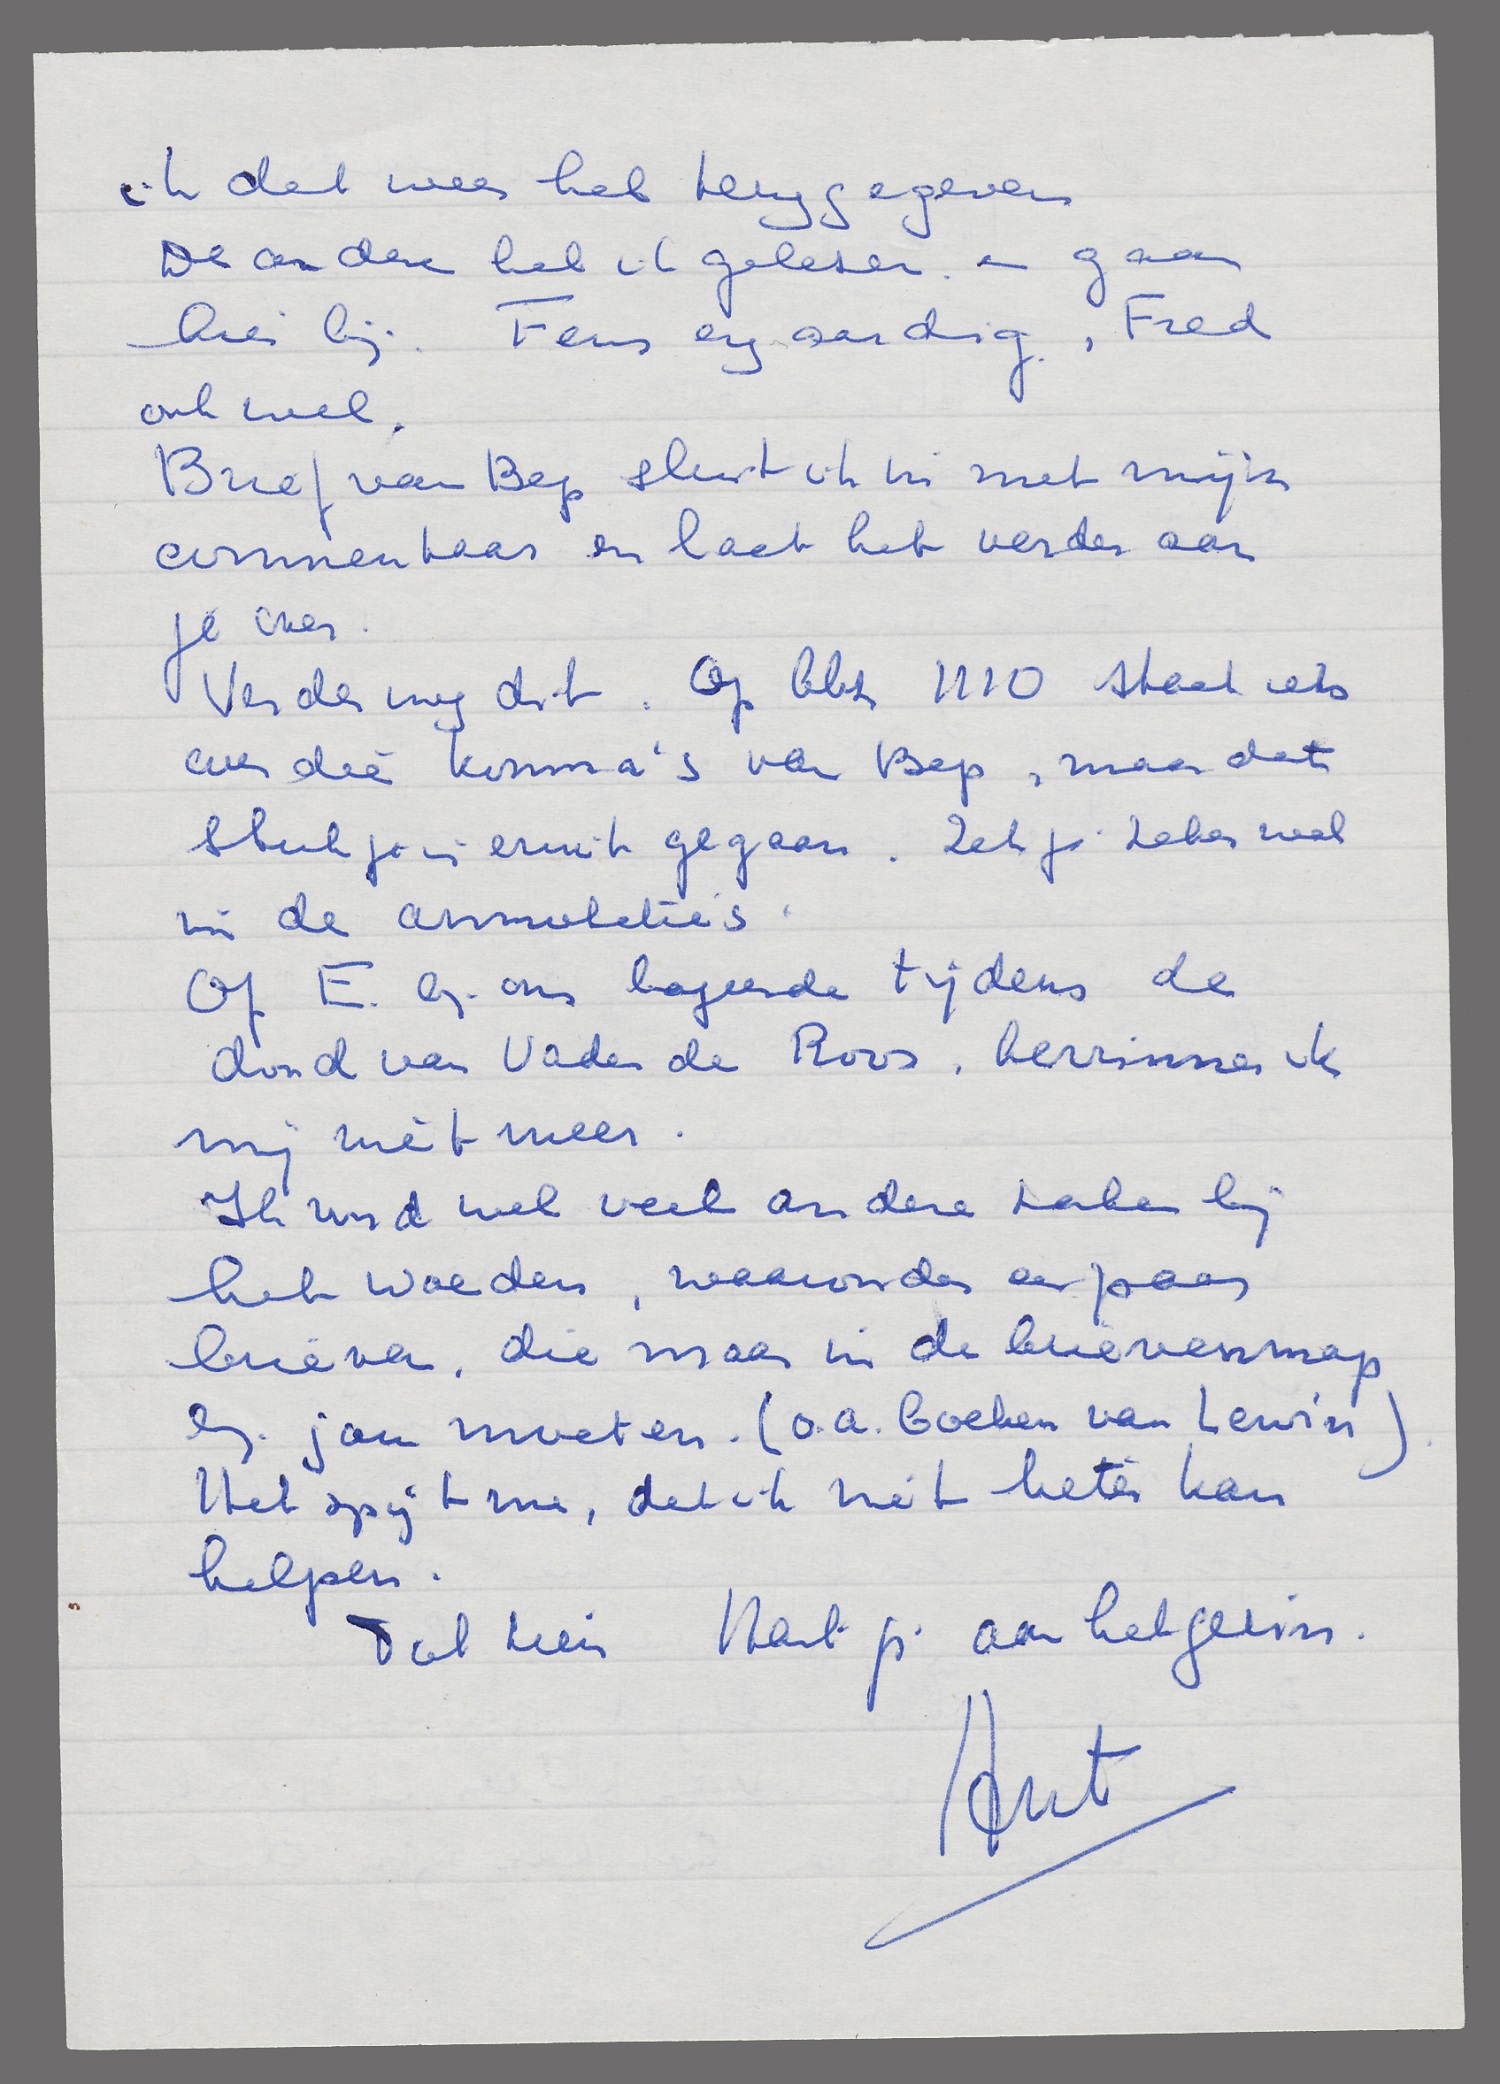 ik dat weer heb teruggegeven
De andere heb ik gelezen en gaan
hierbij. Fens erg aardig, Fred
ook wel.
Brief van Bep sluit ik in met mijn
commentaar en laat het verder aan
je over.
Verder nog dit. Op blz 1110 staat iets
over die komma's van Bep, maar dat
stukje is eruit gegaan. Zet je zeker wel
in de annotatie's.
Of E. bij ons logeerde tijdens de
dood van Vader de Roos, herrinner ik
mij niet meer.
Ik vond wel veel andere zaken bij
het woeden, waaronder een paar
brieven, die maar in de brievenmap
bij jou moeten. (o.a. boeken van Lewin)
Het spijt me, dat ik niet beter kan
helpen.
Tot ziens Hartj. aan het gezin.